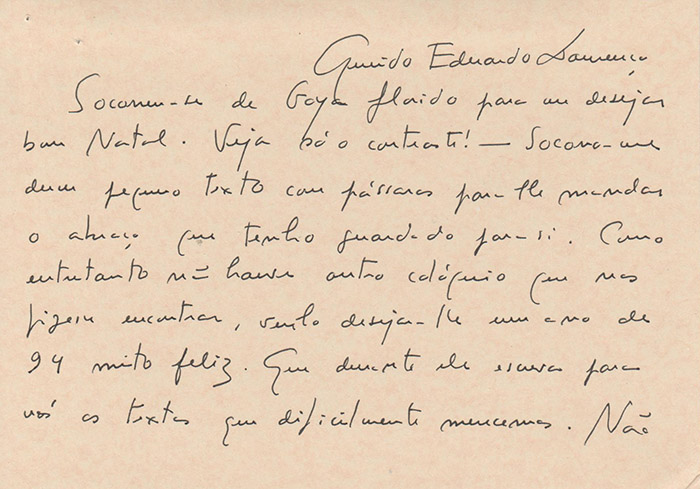 Querido Eduardo Lourenço
Socorreu-se de Goya florido para me desejar
bom Natal. Veja só o contraste! — Socorro-me
dum pequeno texto com pássaros para lhe mandar
o abraço que tenho guardado para si. Como
entretanto não houve outro colóquio que nos
fizesse encontrar, venho desejar-lhe um ano de
94 muito feliz. Que durante ele escreva para
nós os textos que dificilmente merecemos. Não